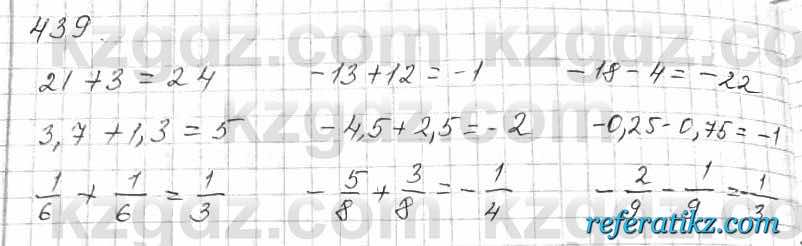 439.
21 + 3 = 24 -13 + 12 = -1 -18 - 4 = -22
3,7 + 1,3 = 5 -4,5 + 2,5 = -2 -0,25 - 0,75 = -1
1/6 + 1/6 = 1/3 -5/8 + 3/8 = -1/4 -2/9 - 1/9 = 1/3
kzgdz.com
referatikz.com